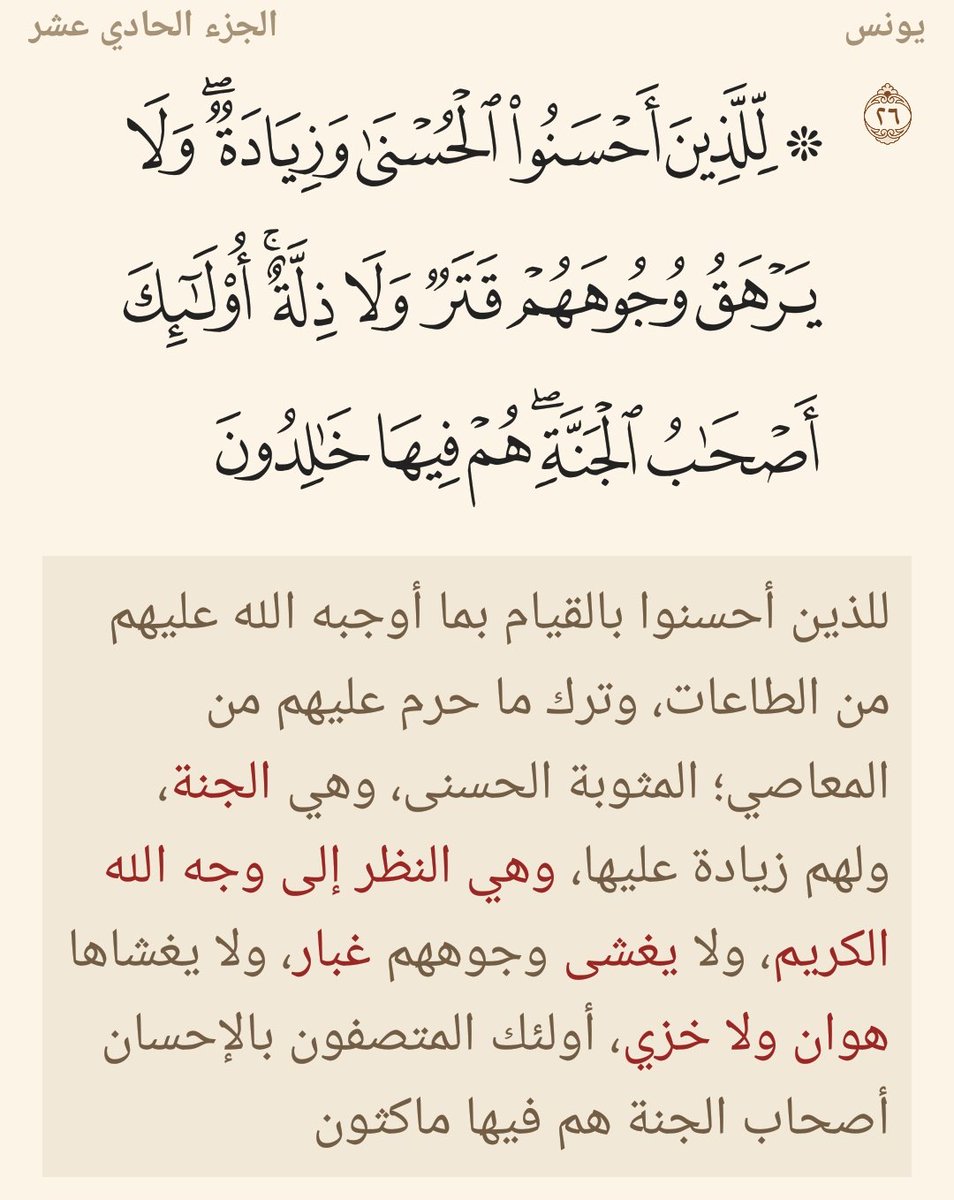 يونس
الجزء الحادي عشر
٢٦
۞ لِّلَّذِينَ أَحۡسَنُواْ ٱلۡحُسۡنَىٰ وَزِيَادَةٞۖ وَلَا
يَرۡهَقُ وُجُوهَهُمۡ قَتَرٞ وَلَا ذِلَّةٌۚ أُوْلَٰٓئِكَ
أَصۡحَٰبُ ٱلۡجَنَّةِۖ هُمۡ فِيهَا خَٰلِدُونَ
للذين أحسنوا بالقيام بما أوجبه الله عليهم
من الطاعات، وترك ما حرم عليهم من
المعاصي؛ المثوبة الحسنى، وهي الجنة،
ولهم زيادة عليها، وهي النظر إلى وجه الله
الكريم، ولا يغشى وجوههم غبار، ولا يغشاها
هوان ولا خزي، أولئك المتصفون بالإحسان
أصحاب الجنة هم فيها ماكثون